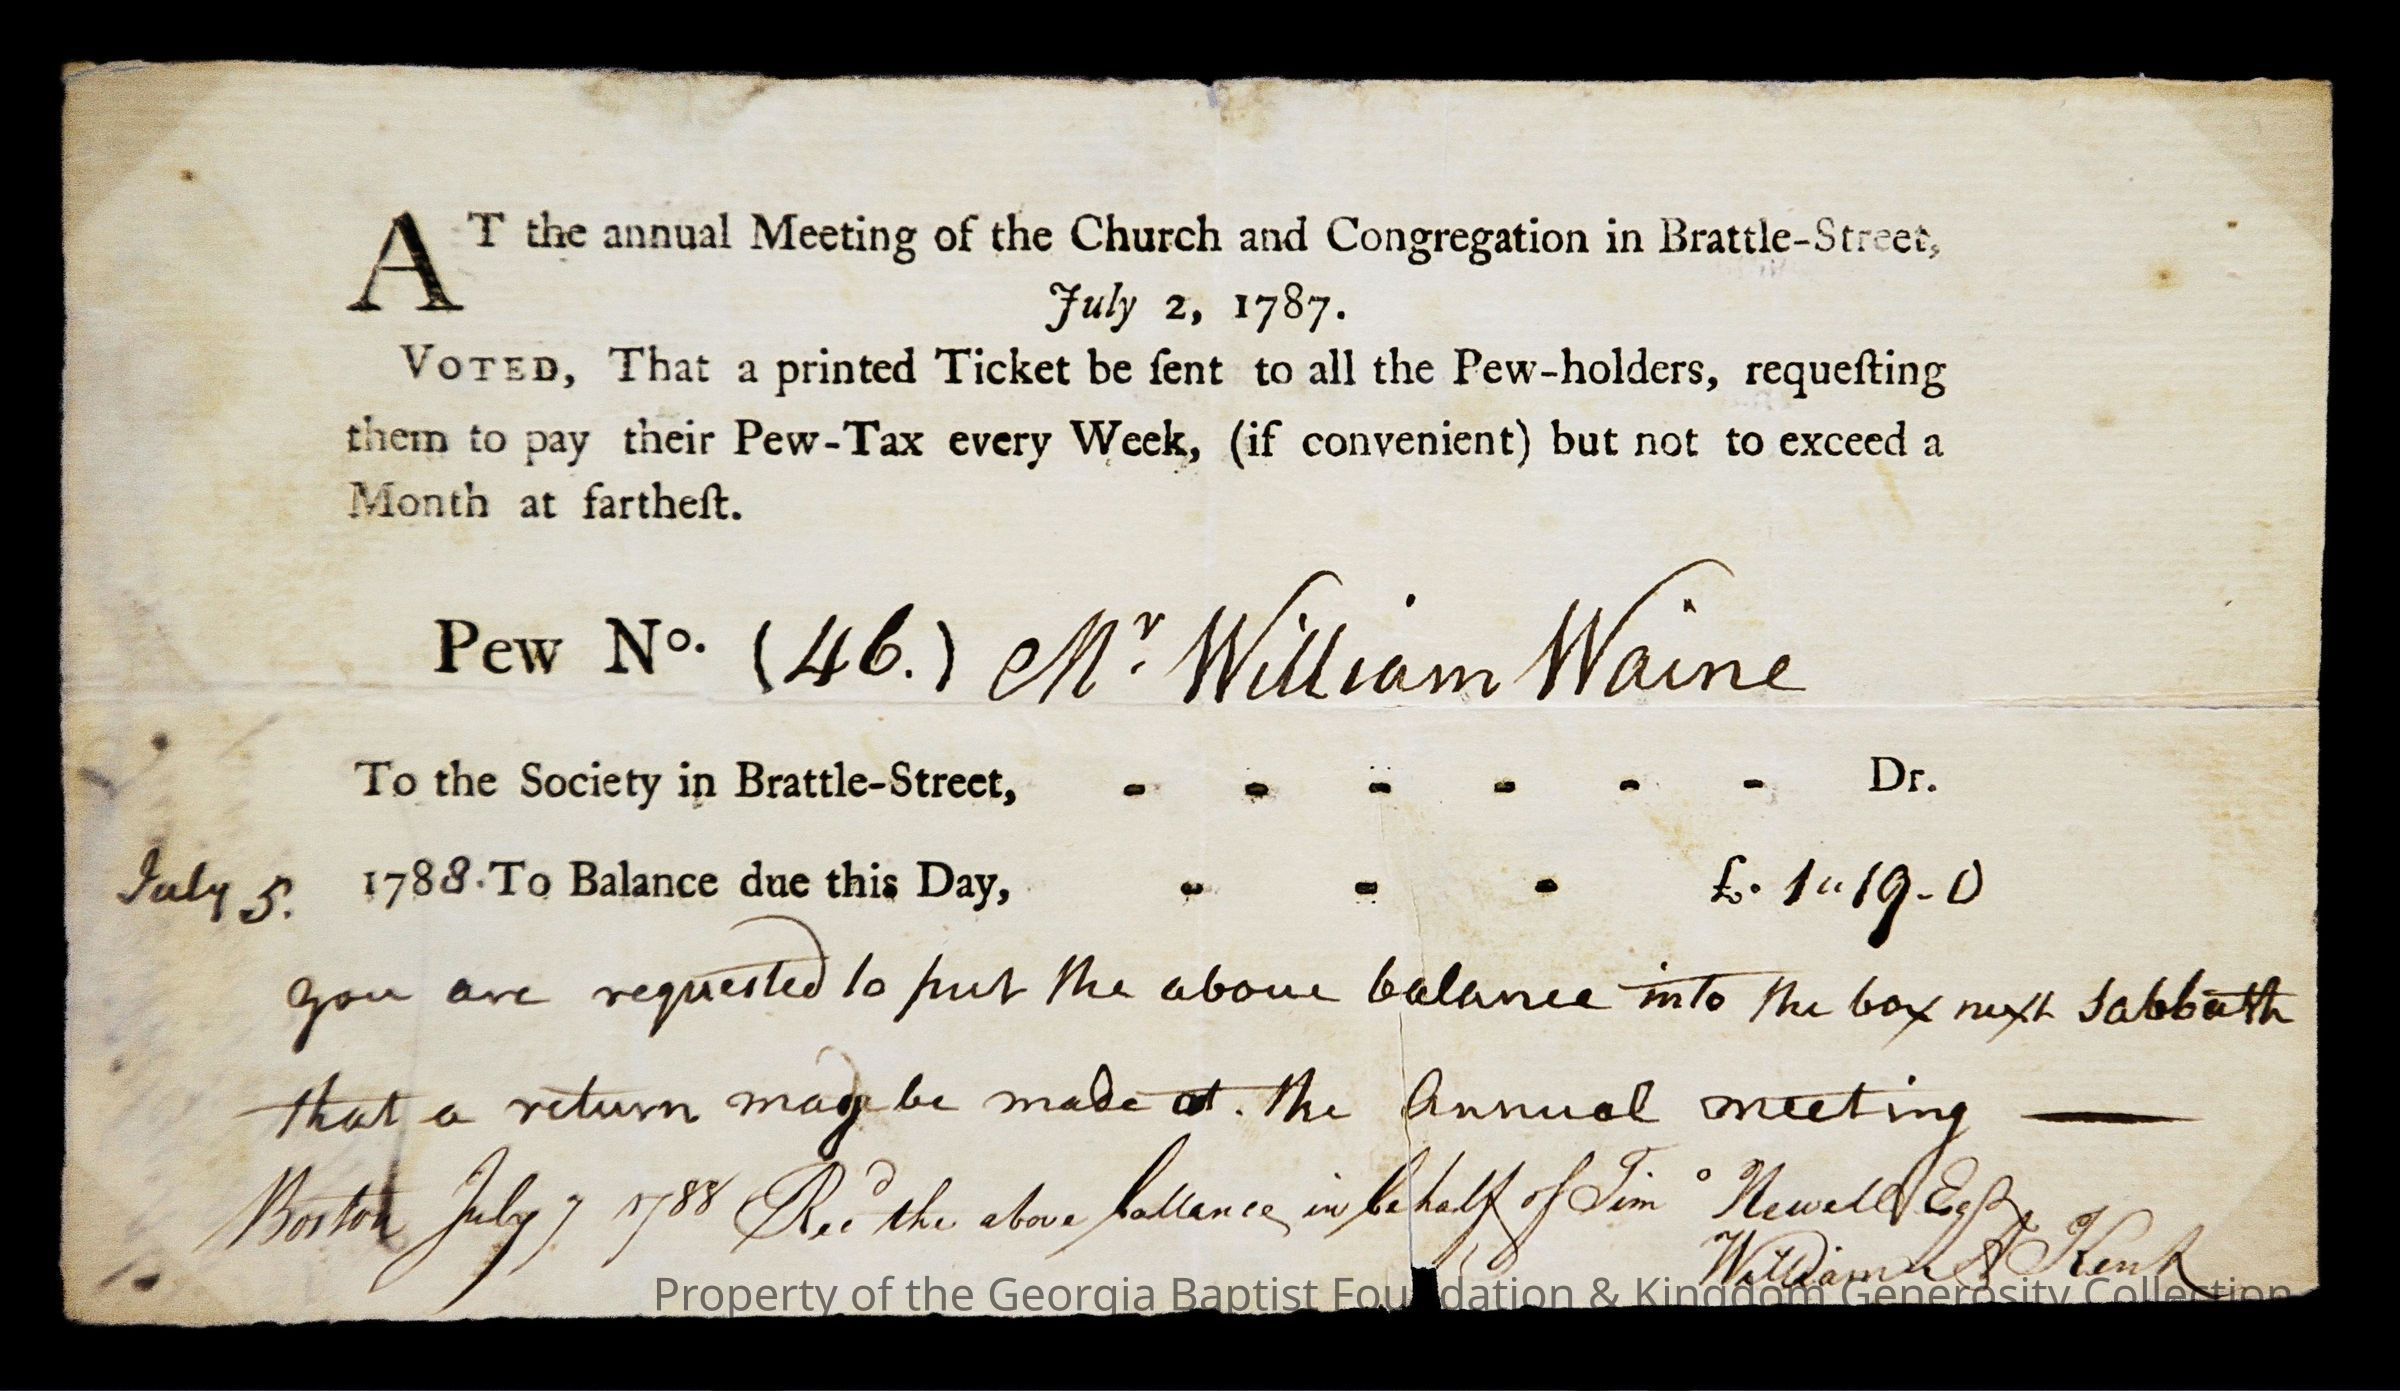 AT the annual Meeting of the Church and Congregation in Brattle-Street,
July 2, 1787.
VOTED, That a printed Ticket be ſent to all the Pew-holders, requeſting
them to pay their Pew-Tax every Week, (if convenient) but not to exceed a
Month at fartheſt.
Pew No. (46.) Mr William Waine
To the Society in Brattle-Street, - - - - - - Dr.
July 5. 1788. To Balance due this Day, - - - £. 1"19-0
you are requested to put the above balance into the box next Sabbath
that a return may be made at. the Annual meeting —
Boston July 7 1788 Recd the above ballance in behalf of Timo Newell Esqr
William A Kent
Property of the Georgia Baptist Foundation & Kingdom Generosity Collection